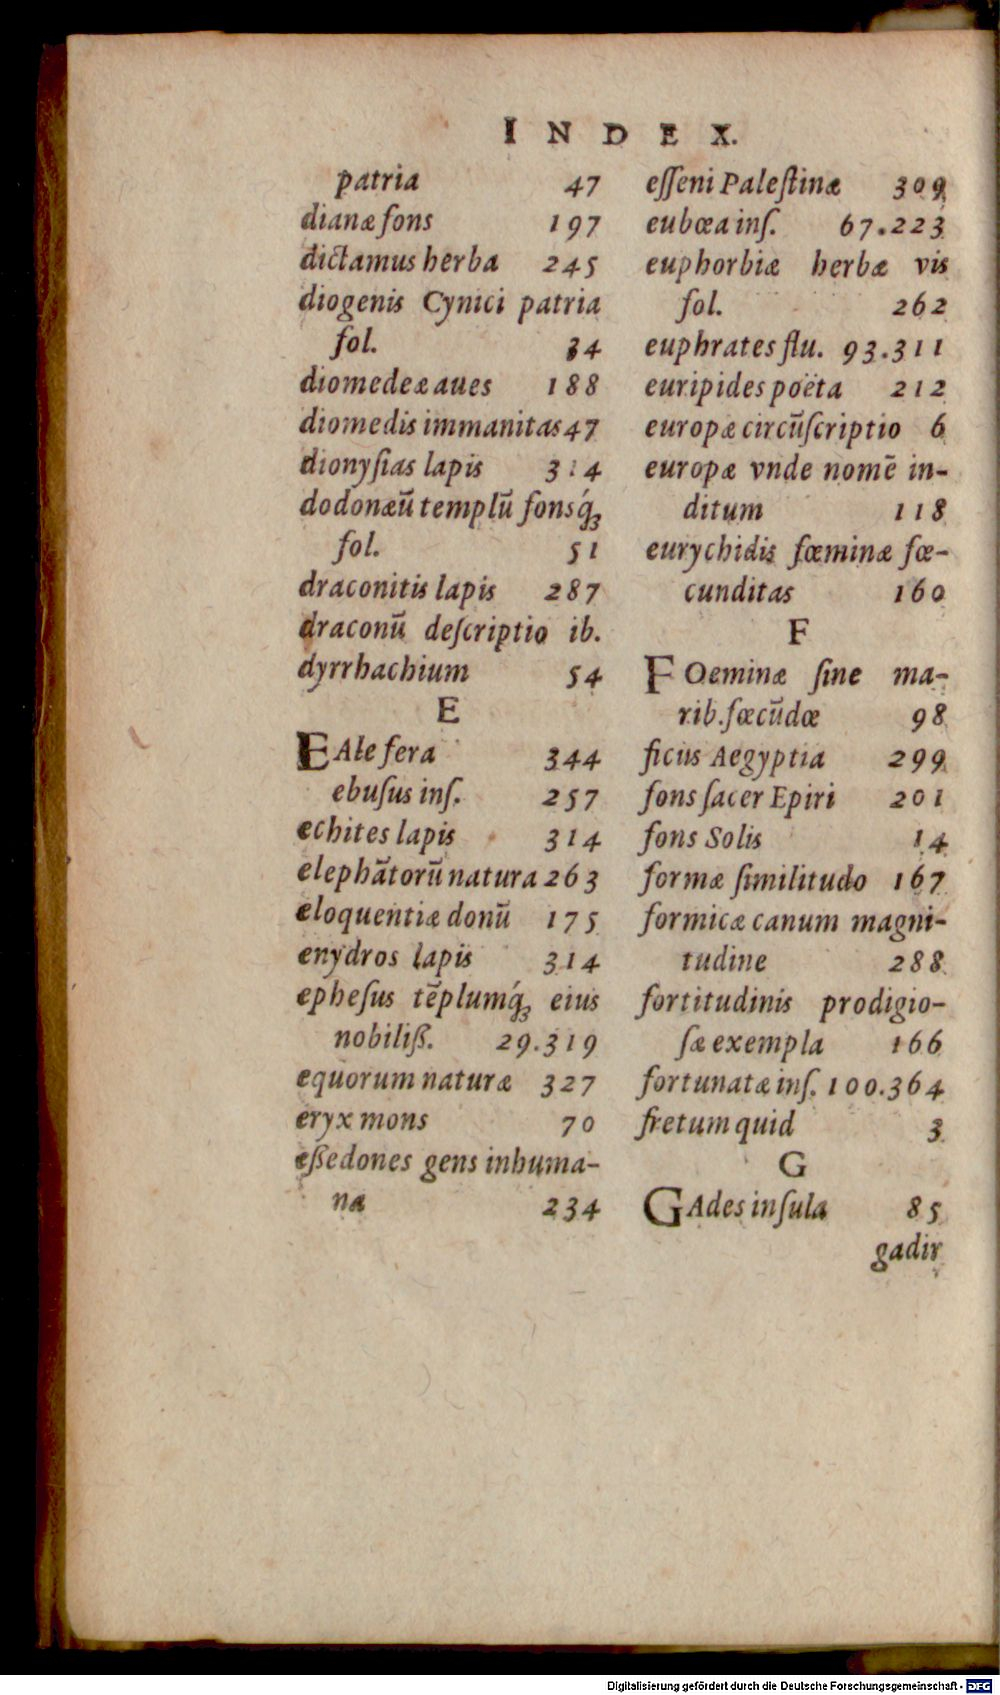 INDEX.
patria 47
dianæ fons 197
dictamus herba 245
diogenis Cynici patria
fol. 34
diomedeæ aues 188
diomedis immanitas 47
dionyſias lapis 314
dodonæū templū fonsq́ꝫ
fol. 51
draconitis lapis 287
draconū deſcriptio ib.
dyrrhachium 54
E
EAle fera 344
ebuſus inſ. 257
echites lapis 314
elephātorū natura 263
eloquentiæ donū 175
enydros lapis 314
epheſus tēplumq́ꝫ eius
nobiliß. 29.319
equorum naturæ 327
eryx mons 70
eßedones gens inhuma-
na 234
eſſeni Paleſtinæ 309
eubœa inſ. 67.223
euphorbiæ herbæ vis
fol. 262
euphrates flu. 93.311
euripides poëta 212
europæ circūſcriptio 6
europæ vnde nomē in-
ditum 118
eurychidis fœminæ fœ-
cunditas 160
F
FOeminæ ſine ma-
rib. fœcūdæ 98
ficus Aegyptia 299
fons ſacer Epiri 201
fons Solis 14
formæ ſimilitudo 167
formicæ canum magni-
tudine 288
fortitudinis prodigio-
ſæ exempla 166
fortunatæ inſ. 100.364
fretum quid 3
G
GAdes inſula 85
gadir
Digitalisierung gefördert durch die Deutsche Forschungsgemeinschaft - DFG